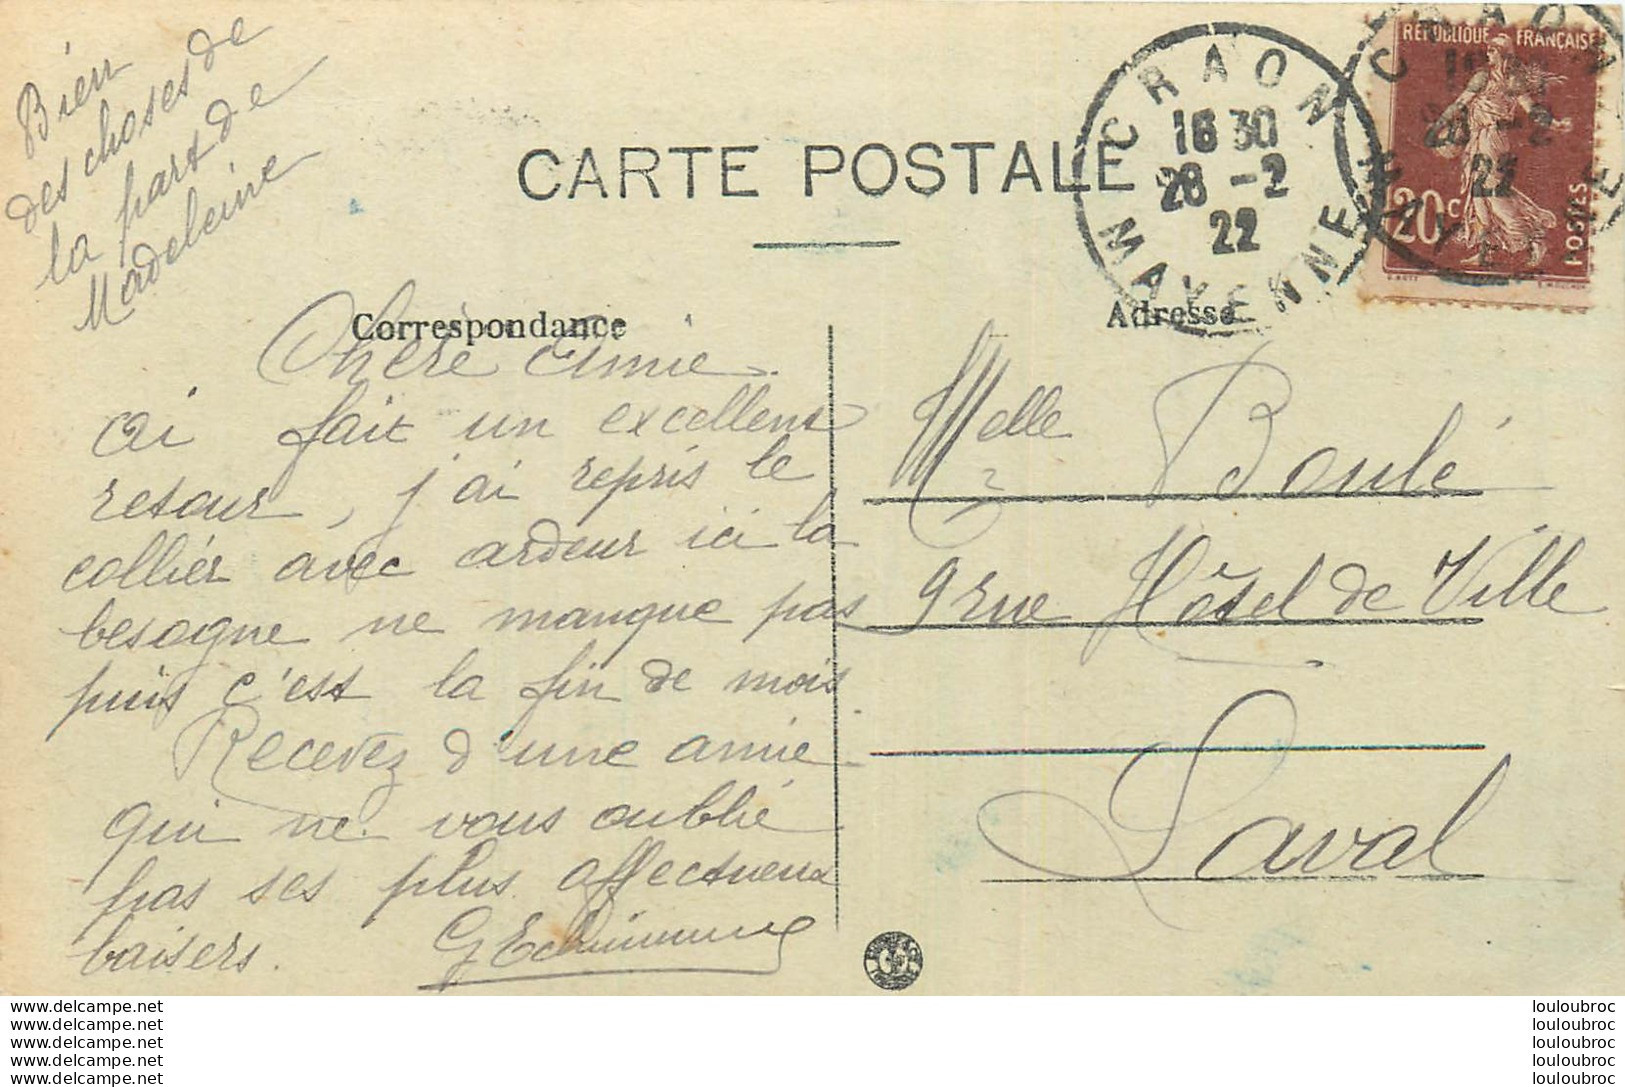 Bien
des choses de
la part de
Madeleine
CARTE POSTALE
CRAON
16 30
28 -2
22
MAYENNE
RÉPUBLIQUE FRANÇAISE
20c
POSTES
CRAON
28 -2
22
Correspondance
Adresse
Chère Amie
ai fait un excellent
retour, j'ai repris le
collier avec ardeur ici la
besogne ne manque pas
puis c'est la fin de mois.
Recevez d'une amie
qui ne vous oublie
pas ses plus affectueux
baisers.
Melle Boulé
9 rue Hôtel de Ville
Laval
www.delcampe.net
www.delcampe.net
www.delcampe.net
www.delcampe.net
www.delcampe.net
louloubroc
louloubroc
louloubroc
louloubroc
louloubroc